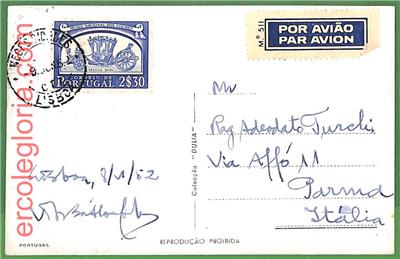 ercolegloria.com
MUSEU NACIONAL DOS COCHES
CORREIO DE
PORTUGAL 2$30
LISBOA
Mº 511
POR AVIÃO
PAR AVION
Mr
Rag Adeodato Turchi
Via Affó 11
Parma
Itália
Lisboa, 8/
Colecção "DULIA"
PORTUGAL
REPRODUÇÃO PROIBIDA